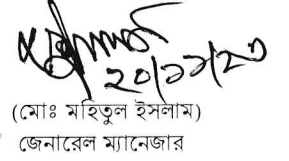 ২০/১১/২৩
(মোঃ মহিতুল ইসলাম)
জেনারেল ম্যানেজার